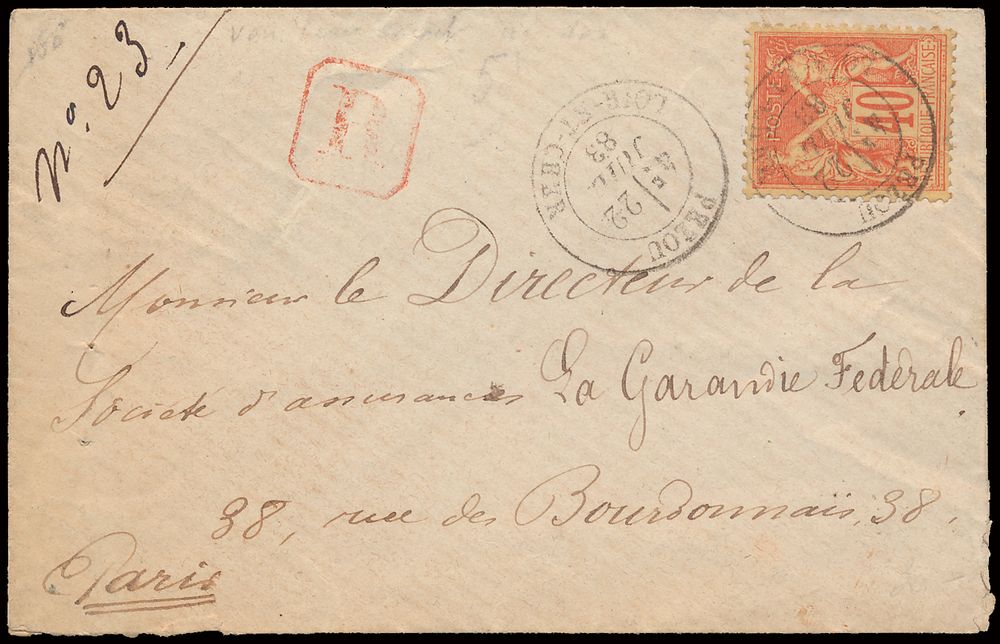 No. 23
R
PEZOU
LOIR-ET-CHER
22
JUIL
83
POSTES
40
RÉPUBLIQUE FRANÇAISE
PEZOU
Monsieur le Directeur de la
Société d'assurances La Garandie Federale
38, rue des Bourdonnais, 38,
Paris